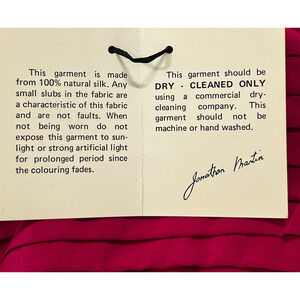 This garment is made
from 100% natural silk. Any
small slubs in the fabric are
a characteristic of this fabric
and are not faults. When
not being worn do not
expose this garment to sun-
light or strong artificial light
for prolonged period since
the colouring fades.
This garment should be
DRY - CLEANED ONLY
using a commercial dry-
cleaning company. This
garment should not be
machine or hand washed.
Jonathan Martin